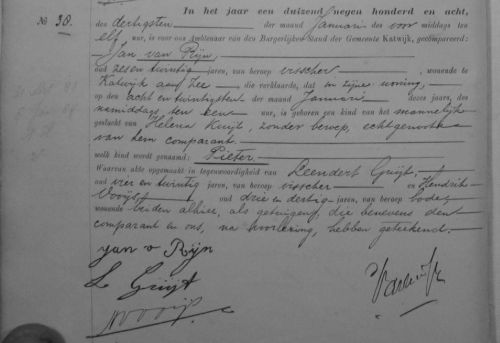 No 30.
In het jaar een duizend negen honderd en acht,
den dertigsten der maand Januari des voor middags ten
elf, ure, is voor ons Ambtenaar van den Burgerlijken Stand der Gemeente Katwijk, gecompareerd:
Jan van Rijn,
oud zes en twintig jaren, van beroep visscher, wonende te
Katwijk aan Zee, die verklaarde, dat in zijne woning,
op den acht en twintigsten der maand Januari dezes jaars, des
namiddags ten een ure, is geboren een kind van het mannelijk
geslacht van Helena Kuijt, zonder beroep, echtgenoote
van hem comparant.
welk kind wordt genaamd: Pieter
Waarvan akte opgemaakt in tegenwoordigheid van Leendert Grijt,
oud vier en twintig jaren, van beroep visscher en Hendrik
oud drie en dertig jaren, van beroep bode,
wonende beiden alhier, als getuigen, die benevens den
comparant en ons, na voorlezing, hebben geteekend.
Jan v Rijn
L Grijt